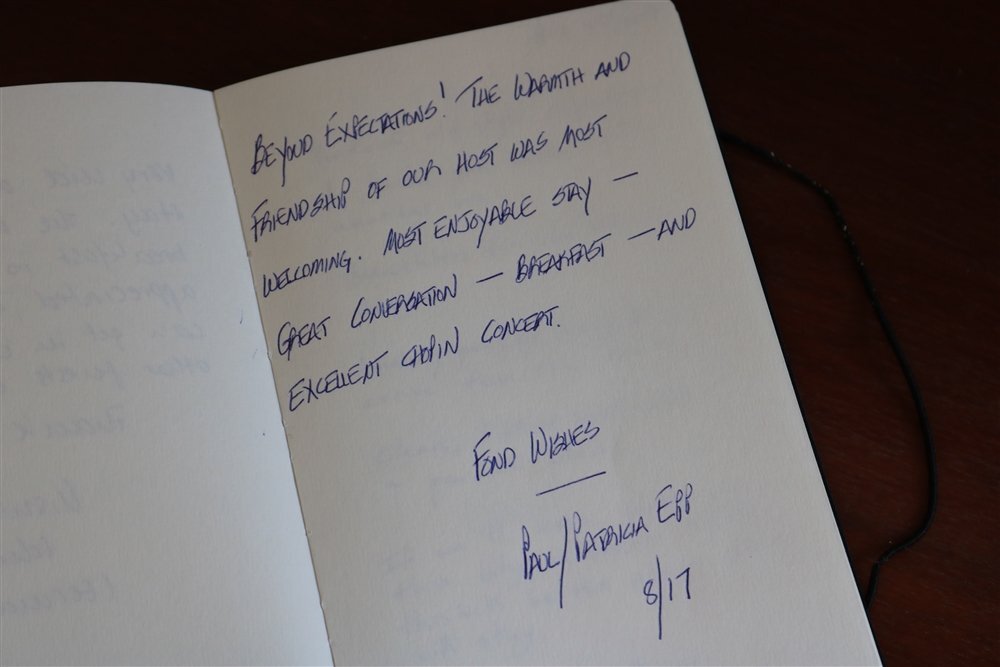 BEYOND EXPECTATIONS! THE WARMTH AND
FRIENDSHIP OF OUR HOST WAS MOST
WELCOMING. MOST ENJOYABLE STAY —
GREAT CONVERSATION — BREAKFAST — AND
EXCELLENT CHOPIN CONCERT.
FOND WISHES
PAUL/PATRICIA EPP
8/17